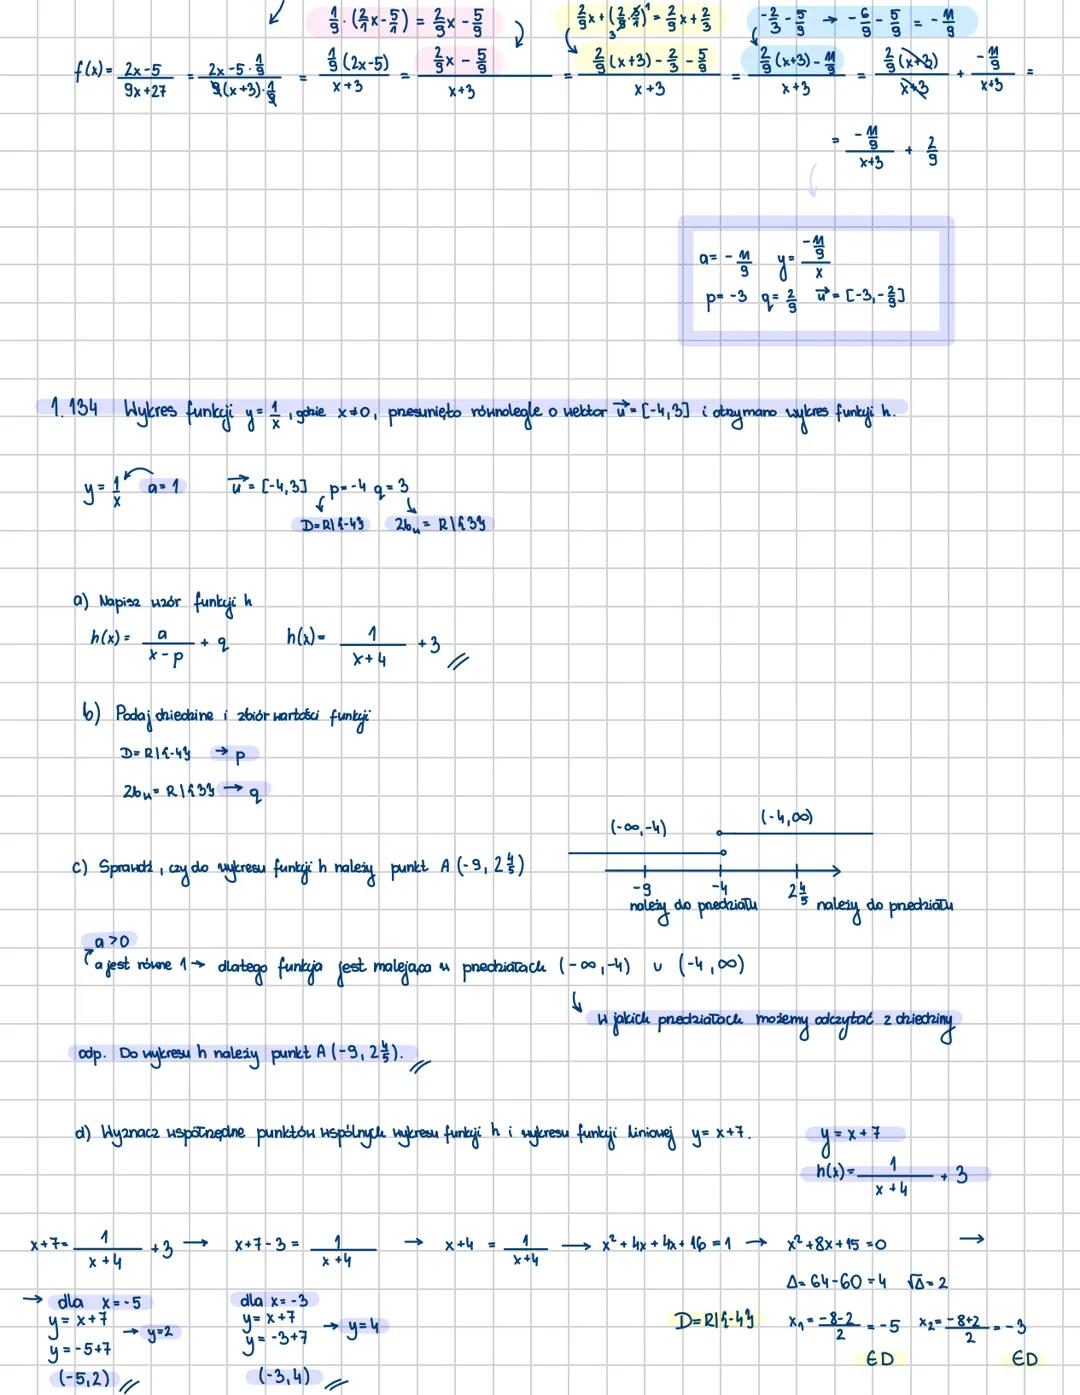 1/9 · (2/1 x - 5/1) = 2/9 x - 5/9
2/9 x + (2/9 · 3/1) = 2/9 x + 2/3
-2/3 - 5/9 → -6/9 - 5/9 = -11/9
f(x) = (2x-5)/(9x+27) = (2x-5 · 1/9)/(9(x+3) · 1/9) = (1/9 (2x-5))/(x+3) = (2/9 x - 5/9)/(x+3) = (2/9 (x+3) - 2/3 - 5/9)/(x+3) = (2/9 (x+3) - 11/9)/(x+3) = (2/9 (x+3))/(x+3) + (-11/9)/(x+3) =
= (-11/9)/(x+3) + 2/9
a = -11/9 y = (-11/9)/x
p = -3 q = 2/9 u⃗ = [-3, -2/9]
1.134 Wykres funkcji y = 1/x, gdzie x≠0, przesunięto równolegle o wektor u⃗ = [-4,3] i otrzymano wykres funkcji h.
y = 1/x a = 1 u⃗ = [-4,3] p = -4 q = 3
D = R\{-4} ZbW = R\{3}
a) Napisz wzór funkcji h
h(x) = a/(x-p) + q h(x) = 1/(x+4) + 3
b) Podaj dziedzine i zbiór wartości funkcji
D = R\{-4} → p
ZbW = R\{3} → q
(-∞,-4) (-4,∞)
c) Sprawdź, czy do wykresu funkcji h należy punkt A (-9, 2 4/5)
-9 -4 2 4/5
należy do przedziału należy do przedziału
a > 0
a jest równe 1 → dlatego funkcja jest malejąca w przedziałach (-∞,-4) ∪ (-4,∞)
w jakich przedziałach możemy odczytać z dziedziny
odp. Do wykresu h należy punkt A (-9, 2 4/5).
d) Wyznacz współrzędne punktów wspólnych wykresu funkcji h i wykresu funkcji liniowej y = x+7.
y = x+7
h(x) = 1/(x+4) + 3
x+7 = 1/(x+4) + 3 → x+7-3 = 1/(x+4) → x+4 = 1/(x+4) → x² + 4x + 4x + 16 = 1 → x² + 8x + 15 = 0 →
Δ = 64-60 = 4 √Δ = 2
→ dla x = -5 dla x = -3
y = x+7 → y=2 y = x+7 → y=4
y = -5+7 y = -3+7
(-5,2) (-3,4)
D = R\{-4} x₁ = (-8-2)/2 = -5 x₂ = (-8+2)/2 = -3
∈D ∈D